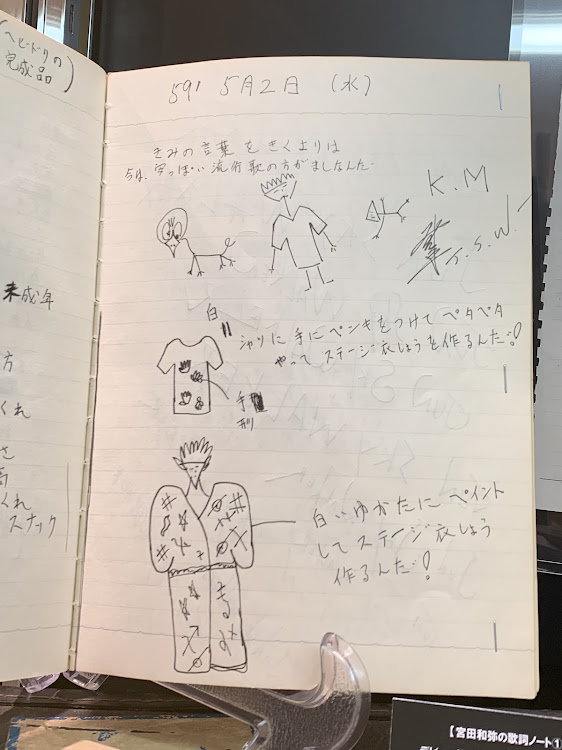 (ヘビードリの
完成品)
未成年
方
くれ
さ
くれ
スナック
591 5月2日 (水)
きみの言葉をきくよりは
安っぽい流行歌の方がましなんだ.
K.M
J.S.W.
白い
シャツに手にペンキをつけてペタペタ
やってステージ衣しょうを作るんだ!
手
形
白いゆかたにペイント
してステージ衣しょう
作るんだ!
【宮田和弥の歌詞ノート①